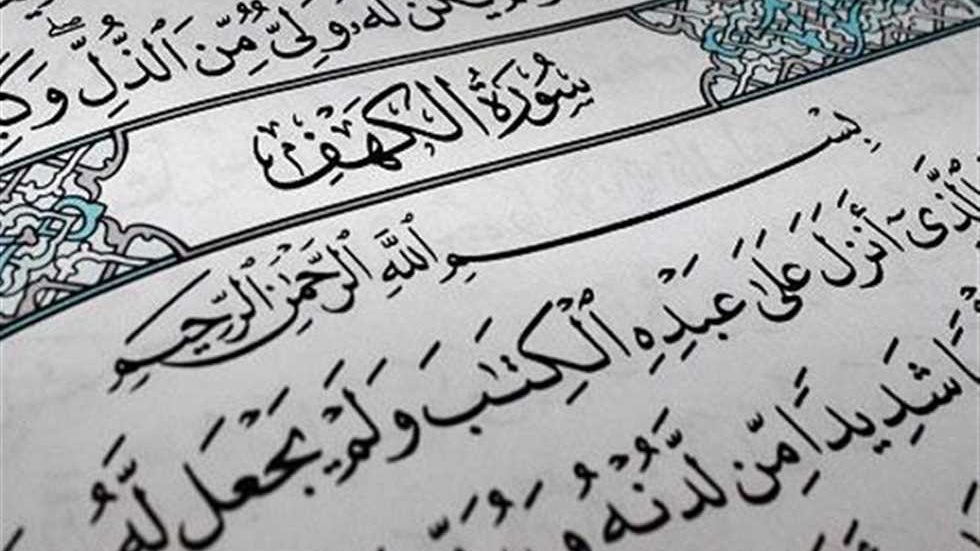 يَكُن لَّهُۥ وَلِىٌّ مِّنَ ٱلذُّلِّ ۖ وَكَبِّ
سُورَةُ الكَهْفِ
بِسْمِ ٱللَّهِ ٱلرَّحْمَٰنِ ٱلرَّحِيمِ
ٱلَّذِىٓ أَنزَلَ عَلَىٰ عَبْدِهِ ٱلْكِتَٰبَ وَلَمْ يَجْعَل لَّهُۥ
شَدِيدًا مِّن لَّدُنْهُ